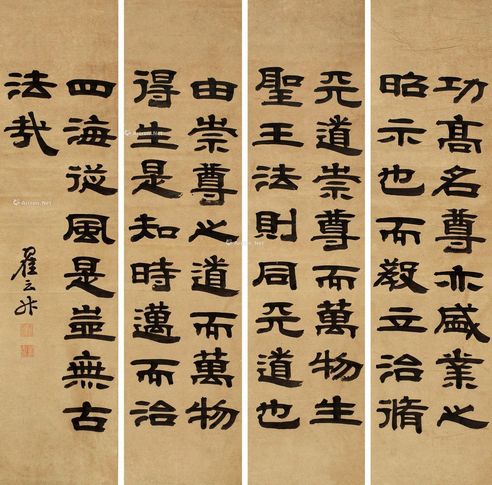 功高名尊亦盛業之
昭示也而教立治脩
天道崇尊而萬物生
聖王法則同天道也
由崇尊之道而萬物
得生是知時邁而治
四海從風是豈無古
法哉
翟云升